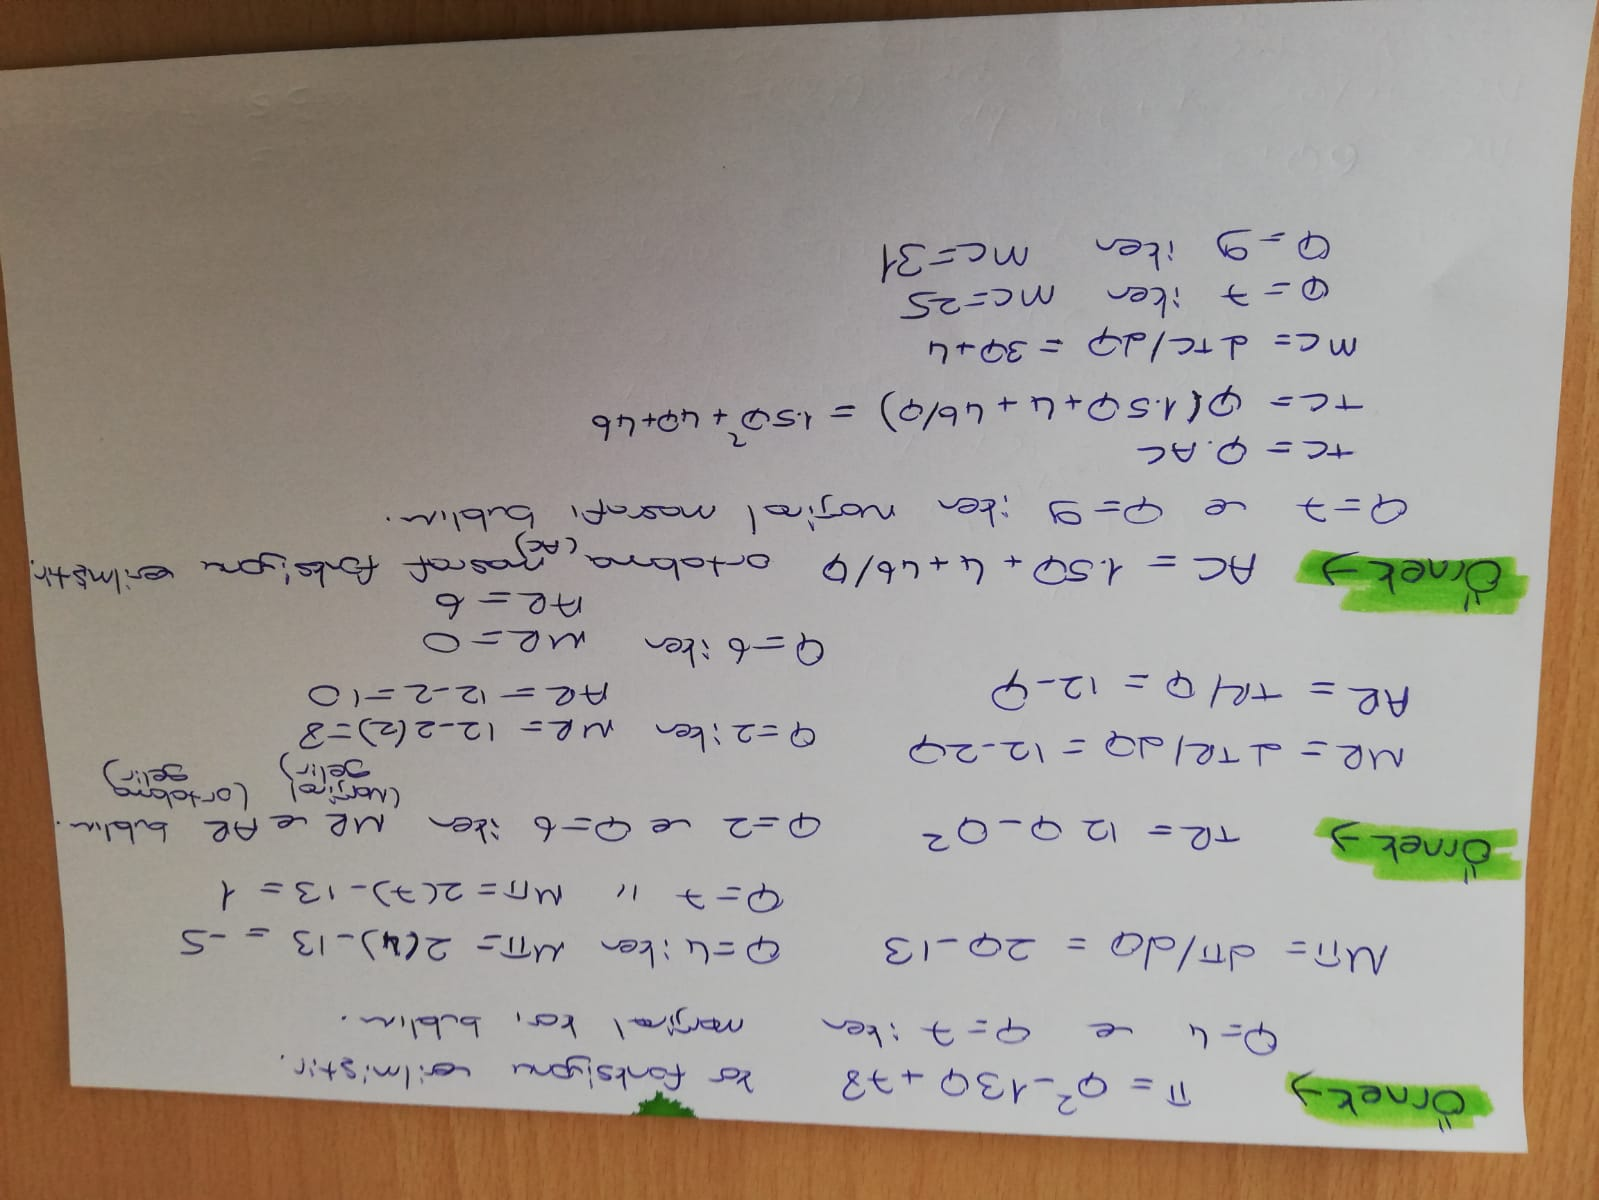 Örnek → π = Q² - 13Q + 78 kar fonksiyonu verilmiştir.
Q=4 ve Q=7 iken marjinal karı bulalım.
Mπ = dπ/dQ = 2Q-13 Q=4 iken Mπ = 2(4)-13 = -5
Q=7 " Mπ = 2(7)-13 = 1
Örnek → TR = 12Q - Q² Q=2 ve Q=6 iken MR ve AR bulalım.
(Marjinal gelir) (ortalama gelir)
MR = dTR/dQ = 12-2Q Q=2 iken MR = 12-2(2)=8
AR = TR/Q = 12-Q AR = 12-2=10
Q=6 iken MR = 0
AR = 6
Örnek → AC = 1.5Q + 4 + 46/Q ortalama masraf (AC) fonksiyonu verilmiştir.
Q=7 ve Q=9 iken marjinal masrafı bulalım.
TC = Q.AC
TC = Q(1.5Q+4+46/Q) = 1.5Q²+4Q+46
MC = dTC/dQ = 3Q+4
Q=7 iken MC=25
Q=9 iken MC=31